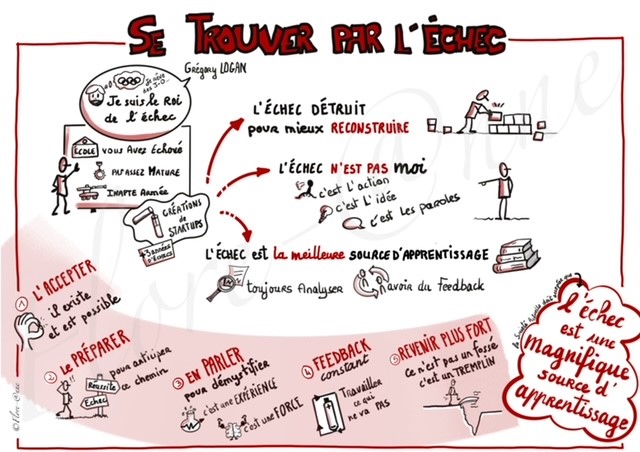 SE TROUVER PAR L'ÉCHEC
Grégory LOGAN
Je suis le Roi
de l'échec
ÉCOLE VOUS AVEZ Échoué
PAS ASSEZ MATURE
INAPTE ARMÉE
CRÉATIONS
de
STARTUPS
L'ÉCHEC DÉTRUIT
pour mieux RECONSTRUIRE
L'ÉCHEC N'EST PAS moi
c'est L'action
c'est L'idée
c'est les paroles
L'ÉCHEC est la meilleure SOURCE D'APPRENTISSAGE
toujours Analyser
avoir du Feedback
1 L'ACCEPTER
il existe
et est possible
2 Le PRÉPARER
pour anticiper
ce chemin
Réussite
Echec
3 EN PARLER
pour démystifier
c'est une EXPÉRIENCE
c'est une FORCE
4 FEEDBACK
constant
Travailler
ce qui
ne va pas
5 REVENIR PLUS FORT
Ce n'est pas un fossé
c'est un TREMPLIN
l'échec
est une
magnifique
source d'
apprentissage